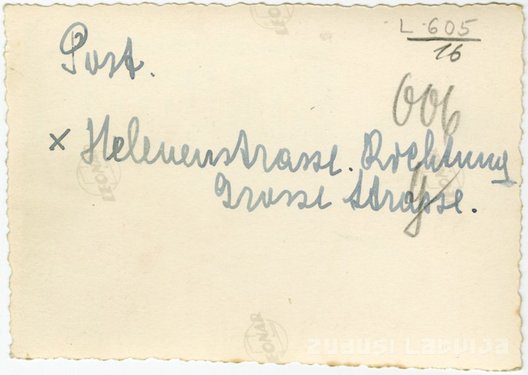 L-605
16
Post.
006
x Helenenstrasse. Richtung
Grosse Strasse.
LEONAR
LEONAR
LEONAR
LEONAR
ZUDUSI LATVIJA